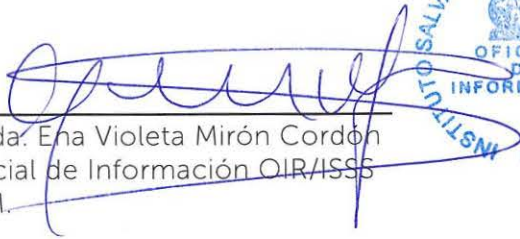 da. Ena Violeta Mirón Cordón
cial de Información OIR/ISSS
INSTITUTO SALV
OFIC
INFOR